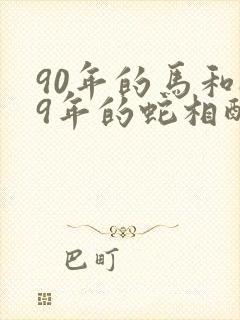 90年的馬和
9年的蛇相
巴町